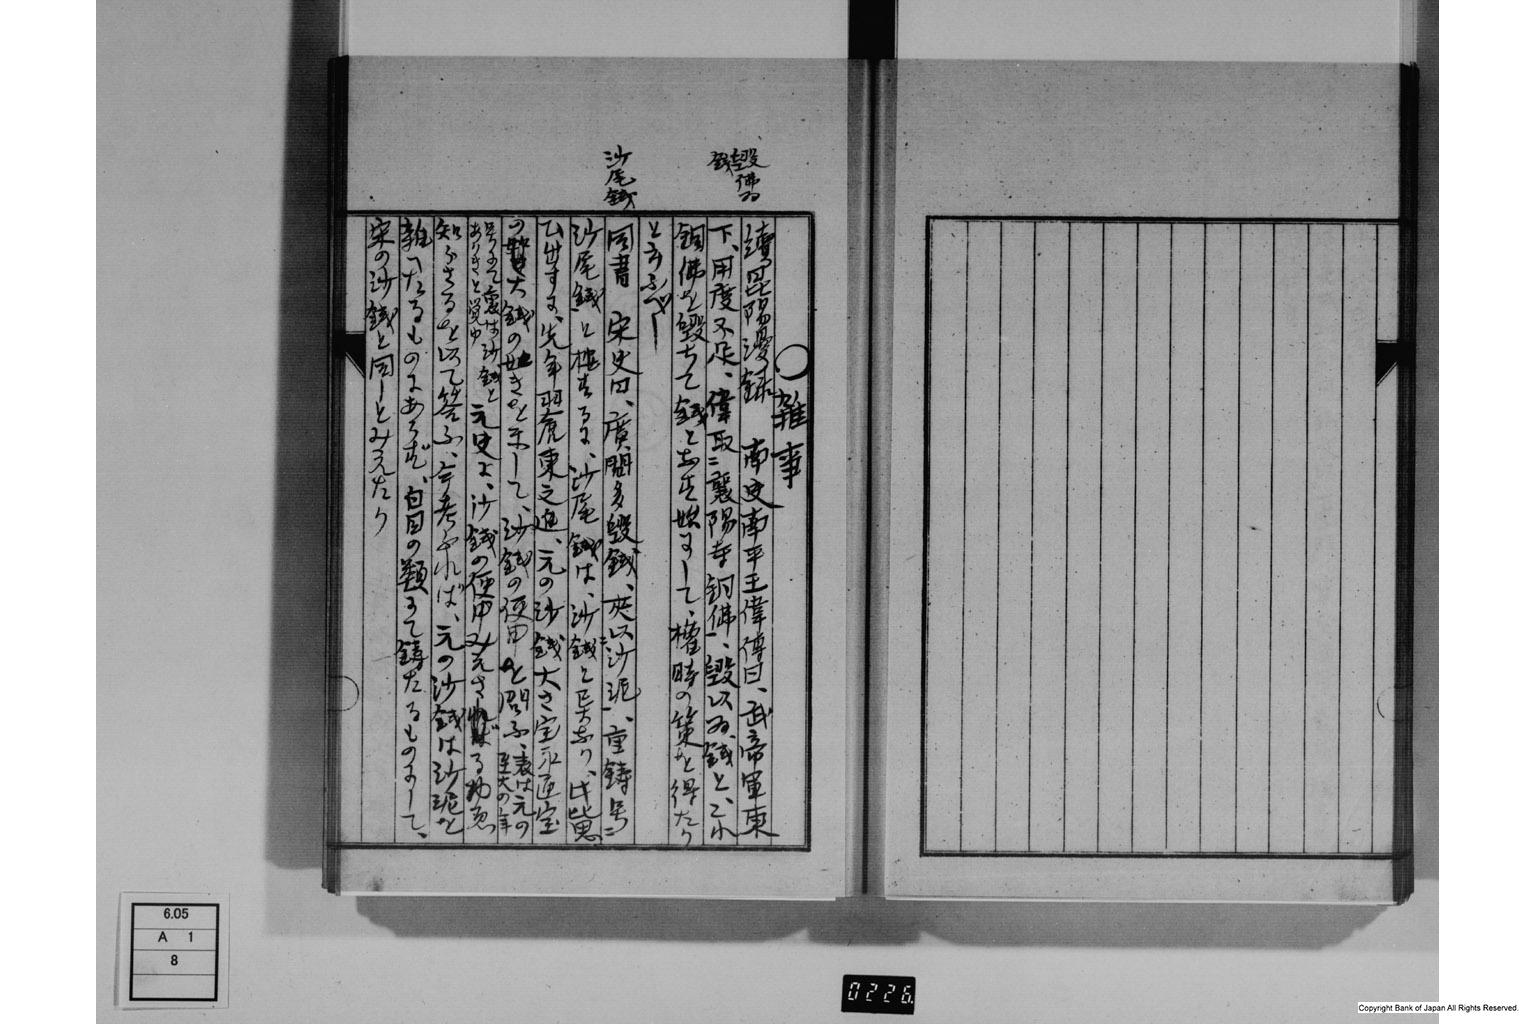 毀佛為
錢
沙尾錢
○雜事
續昆陽漫録　南史南平王偉傳曰、武帝軍東
下、用度不足、偉取二襄陽寺銅佛一、毀以為錢と、これ
銅佛を毀ちて錢となす始にして、權時の策を得たり
と云ふべし
同書　宋史曰、廣間多毀錢、夾以沙泥一、重鑄号二
沙尾錢一と標するに、沙尾錢は、沙錢と
ひ出すに、先年 東之進、元の沙錢大さ宝永通宝
の大錢の如きを示して、沙錢の使用を問ふ、表は元の至大の年
号にて裏は沙錢とありきと覚ゆ 元史に、沙錢の使用みえされば
知ふさるを以て答ふ、今考ふれば、元の沙錢は沙泥を
雜へたるものにあらず、白眉の類にて鑄たるものにして、
宋の沙錢と同しとみえたり
6.05
A 1
8
0226.
Copyright Bank of Japan All Rights Reserved.